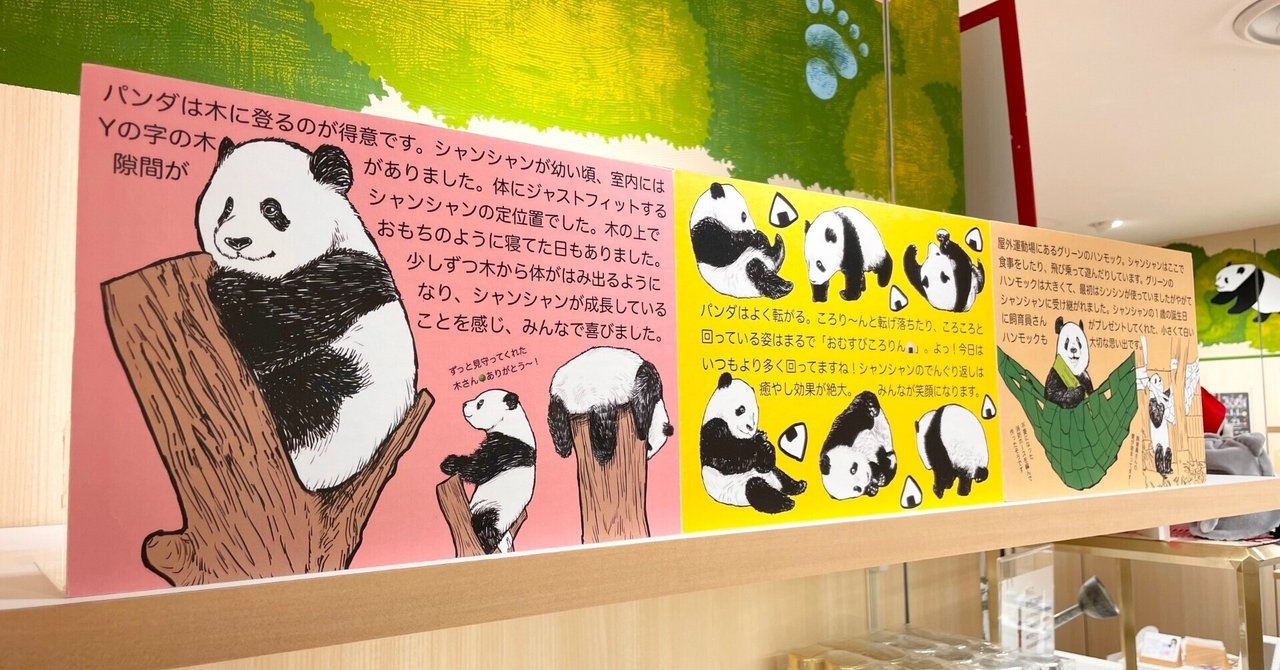 パンダは木に登るのが得意です。シャンシャンが幼い頃、室内には
Yの字の木がありました。体にジャストフィットする
隙間がシャンシャンの定位置でした。木の上で
おもちのように寝てた日もありました。
少しずつ木から体がはみ出るように
なり、シャンシャンが成長している
ことを感じ、みんなで喜びました。
ずっと見守ってくれた
木さんありがとう〜！
パンダはよく転がる。ころり〜んと転げ落ちたり、ころころと
回っている姿はまるで「おむすびころりん🍙」。よっ！今日は
いつもより多く回ってますね！シャンシャンのでんぐり返しは
癒やし効果が絶大。みんなが笑顔になります。
屋外運動場にあるグリーンのハンモック。シャンシャンはここで
食事をしたり、飛び乗って遊んだりしています。グリーンの
ハンモックは大きくて、最初はシンシンが使っていましたがやがて
シャンシャンに受け継がれました。シャンシャンの1歳の誕生日
に飼育員さんがプレゼントしてくれた、小さくて白い
ハンモックも大切な思い出です。